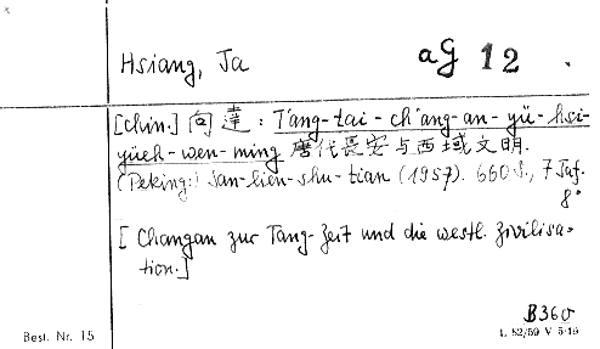 Hsiang, Ta
aG 12 .
[chin.] 向達: T'ang-tai-ch'ang-an-yü-hsi-
yüeh-wen-ming 唐代長安与西域文明.
(Peking:) San-lien-shu-tian (1957). 660 S., 7 Taf.
8°
[Changan zur Tang-Zeit und die westl. Zivilisa-
tion.]
B360
Best. Nr. 15
L 52/59 V 5-19